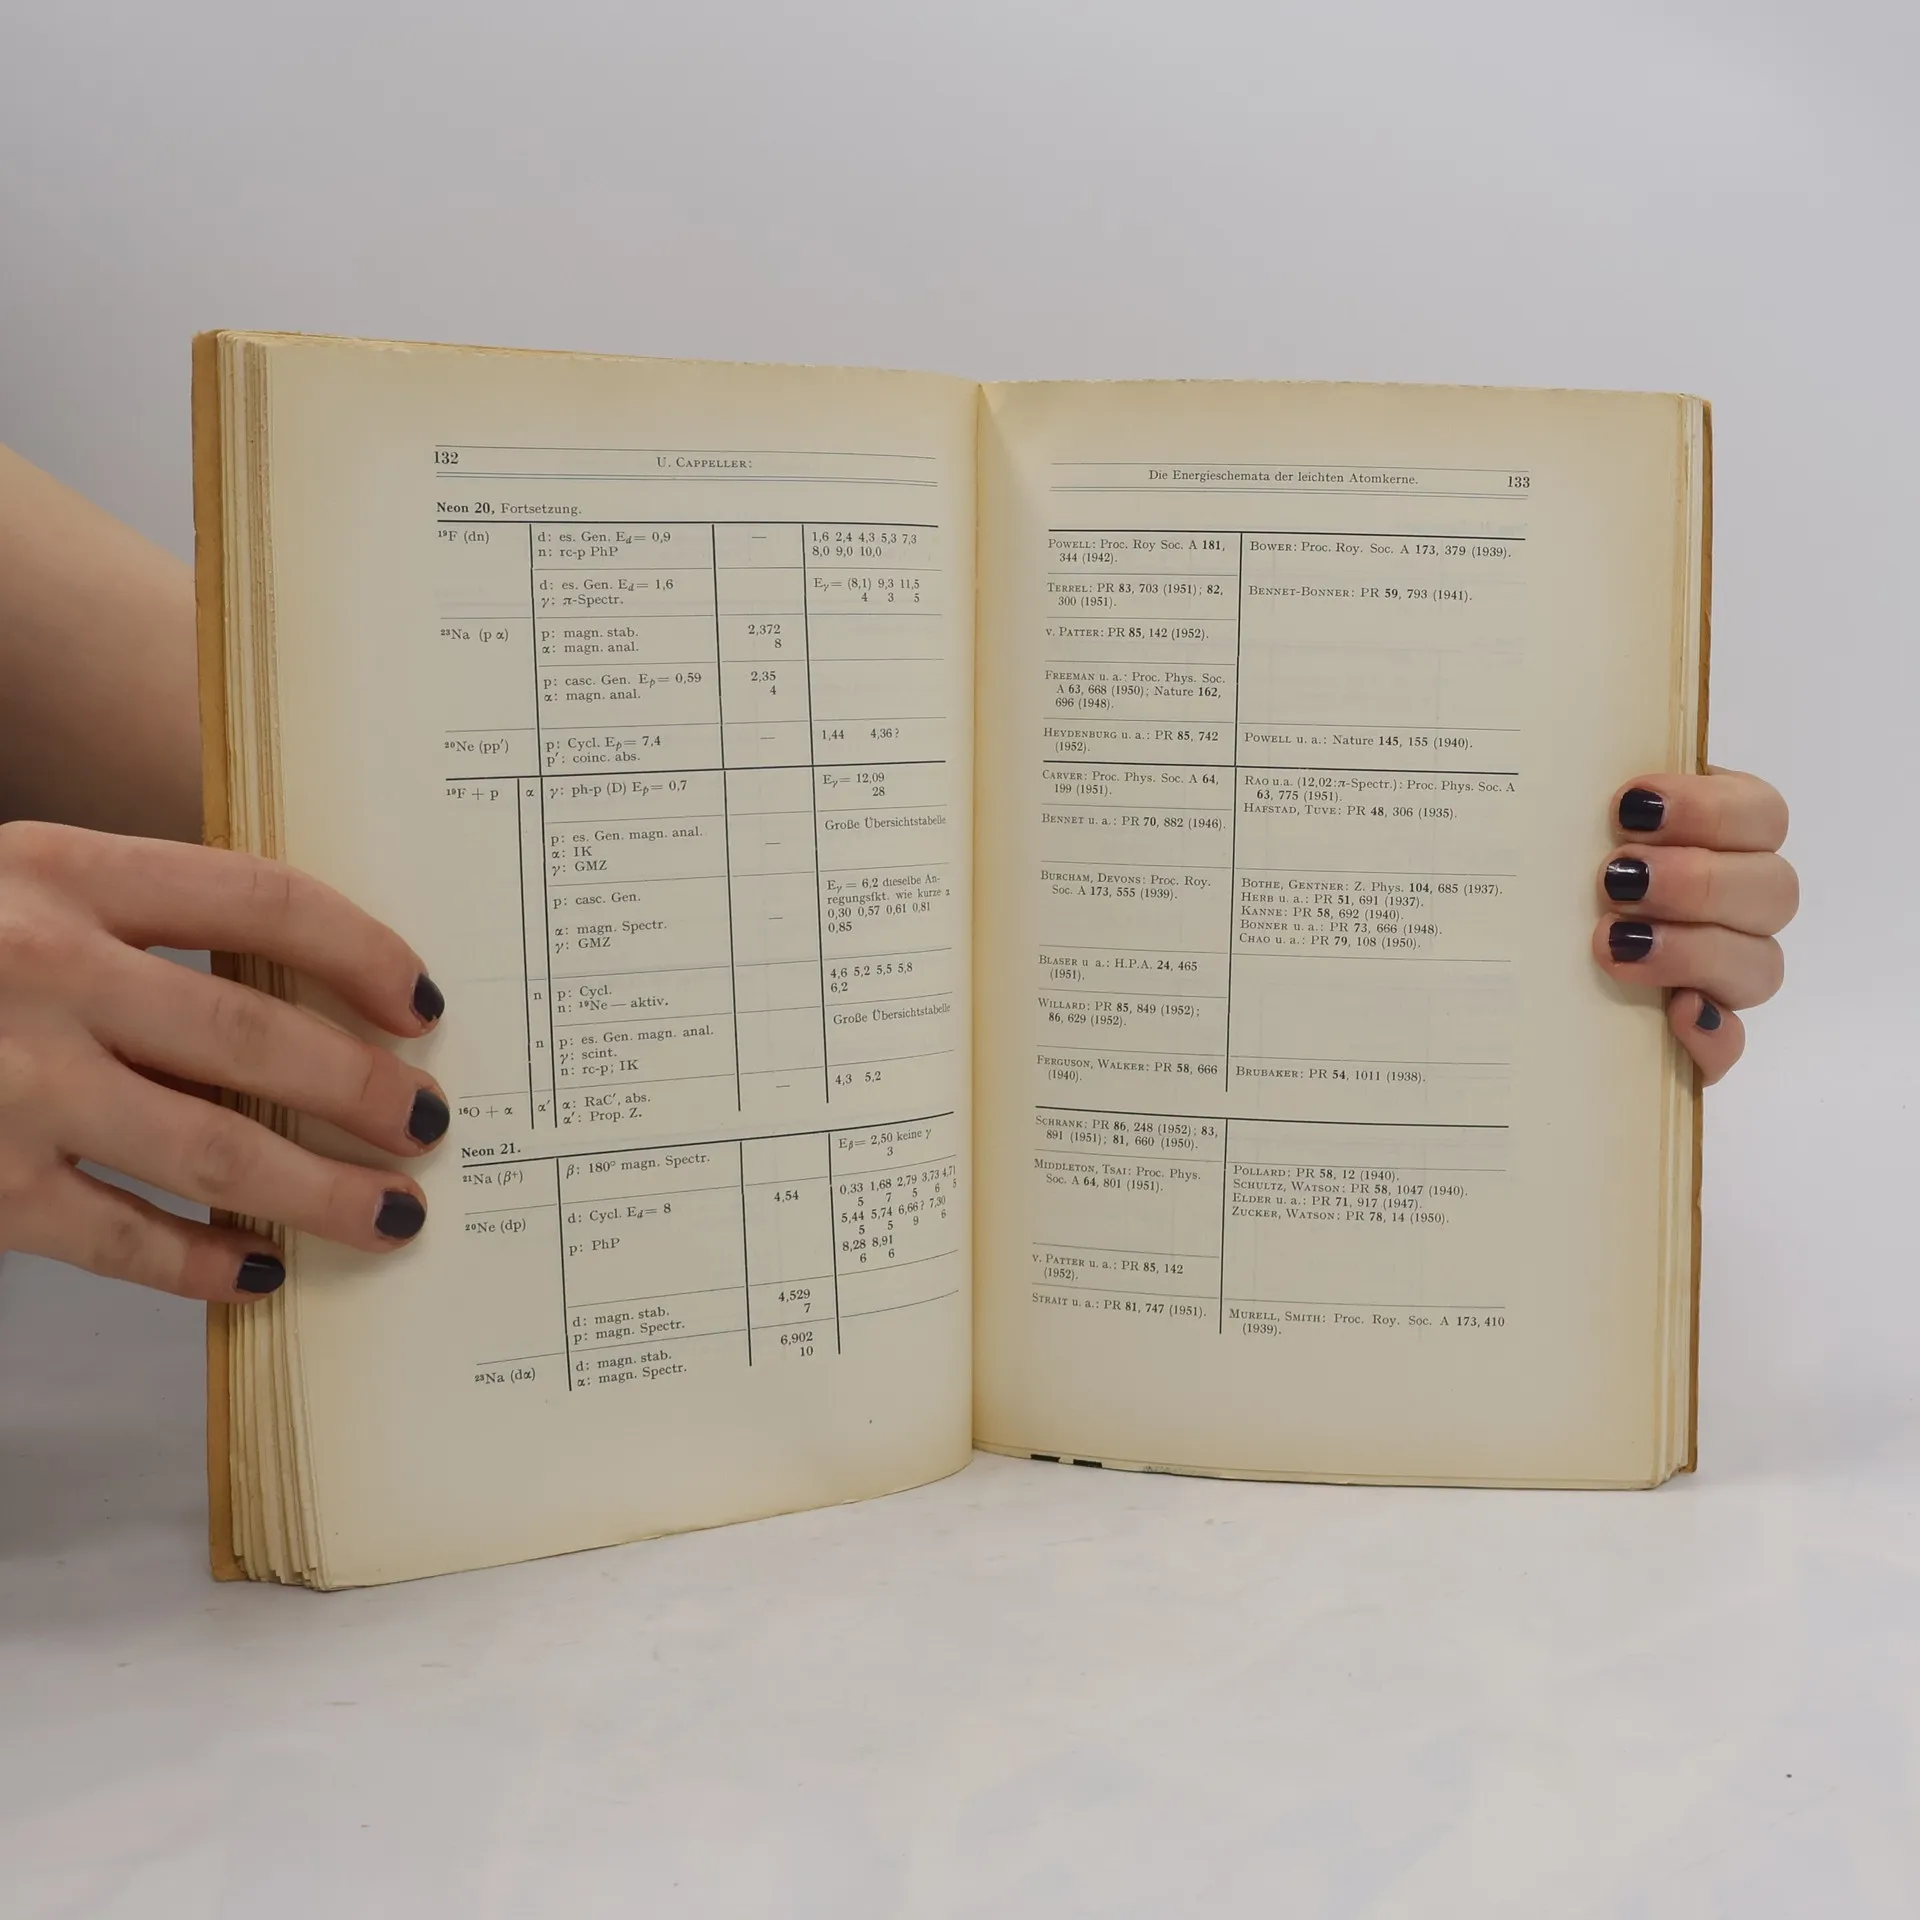 132
U. Cappeller:
Neon 20, Fortsetzung.
¹⁹F (dn) d: es. Gen. E_d = 0,9 — 1,6 2,4 4,3 5,3 7,3
n: rc-p PhP 8,0 9,0 10,0
d: es. Gen. E_d = 1,6 E_γ = (8,1) 9,3 11,5
γ: π-Spectr. 4 3 5
²³Na (p α) p: magn. stab. 2,372
α: magn. anal. 8
p: casc. Gen. E_p = 0,59 2,35
α: magn. anal. 4
²⁰Ne (pp′) p: Cycl. E_p = 7,4 — 1,44 4,36?
p′: coinc. abs.
¹⁹F + p α γ: ph-p (D) E_p = 0,7 E_γ = 12,09
28
p: es. Gen. magn. anal. — Große Übersichtstabelle
α: IK
γ: GMZ
p: casc. Gen. — E_γ = 6,2 dieselbe An-
regungsfkt. wie kurze α
α: magn. Spectr. 0,30 0,57 0,61 0,81
γ: GMZ 0,85
n p: Cycl. 4,6 5,2 5,5 5,8
n: ¹⁹Ne — aktiv. 6,2
n p: es. Gen. magn. anal. Große Übersichtstabelle
γ: scint.
n: rc-p; IK
¹⁶O + α α′ α: RaC′, abs. — 4,3 5,2
α′: Prop. Z.
Neon 21.
²¹Na (β⁺) β: 180° magn. Spectr. E_β = 2,50 keine γ
3
²⁰Ne (dp) d: Cycl. E_d = 8 4,54 0,33 1,68 2,79 3,73 4,71
5 7 5 6 5
p: PhP 5,44 5,74 6,66? 7,30
5 5 9 6
8,28 8,91
6 6
d: magn. stab. 4,529
p: magn. Spectr. 7
²³Na (dα) d: magn. stab. 6,902
α: magn. Spectr. 10
Die Energieschemata der leichten Atomkerne.
133
Powell: Proc. Roy Soc. A 181, Bower: Proc. Roy. Soc. A 173, 379 (1939).
344 (1942).
Terrel: PR 83, 703 (1951); 82, Bennet-Bonner: PR 59, 793 (1941).
300 (1951).
v. Patter: PR 85, 142 (1952).
Freeman u. a.: Proc. Phys. Soc.
A 63, 668 (1950); Nature 162,
696 (1948).
Heydenburg u. a.: PR 85, 742 Powell u. a.: Nature 145, 155 (1940).
(1952).
Carver: Proc. Phys. Soc. A 64, Rao u.a. (12,02:π-Spectr.): Proc. Phys. Soc. A
199 (1951). 63, 775 (1951).
Hafstad, Tuve: PR 48, 306 (1935).
Bennet u. a.: PR 70, 882 (1946).
Burcham, Devons: Proc. Roy. Bothe, Gentner: Z. Phys. 104, 685 (1937).
Soc. A 173, 555 (1939). Herb u. a.: PR 51, 691 (1937).
Kanne: PR 58, 692 (1940).
Bonner u. a.: PR 73, 666 (1948).
Chao u. a.: PR 79, 108 (1950).
Blaser u a.: H.P.A. 24, 465
(1951).
Willard: PR 85, 849 (1952);
86, 629 (1952).
Ferguson, Walker: PR 58, 666 Brubaker: PR 54, 1011 (1938).
(1940).
Schrank: PR 86, 248 (1952); 83,
891 (1951); 81, 660 (1950).
Middleton, Tsai: Proc. Phys. Pollard: PR 58, 12 (1940).
Soc. A 64, 801 (1951). Schultz, Watson: PR 58, 1047 (1940).
Elder u. a.: PR 71, 917 (1947).
Zucker, Watson: PR 78, 14 (1950).
v. Patter u. a.: PR 85, 142
(1952).
Strait u. a.: PR 81, 747 (1951). Murell, Smith: Proc. Roy. Soc. A 173, 410
(1939).